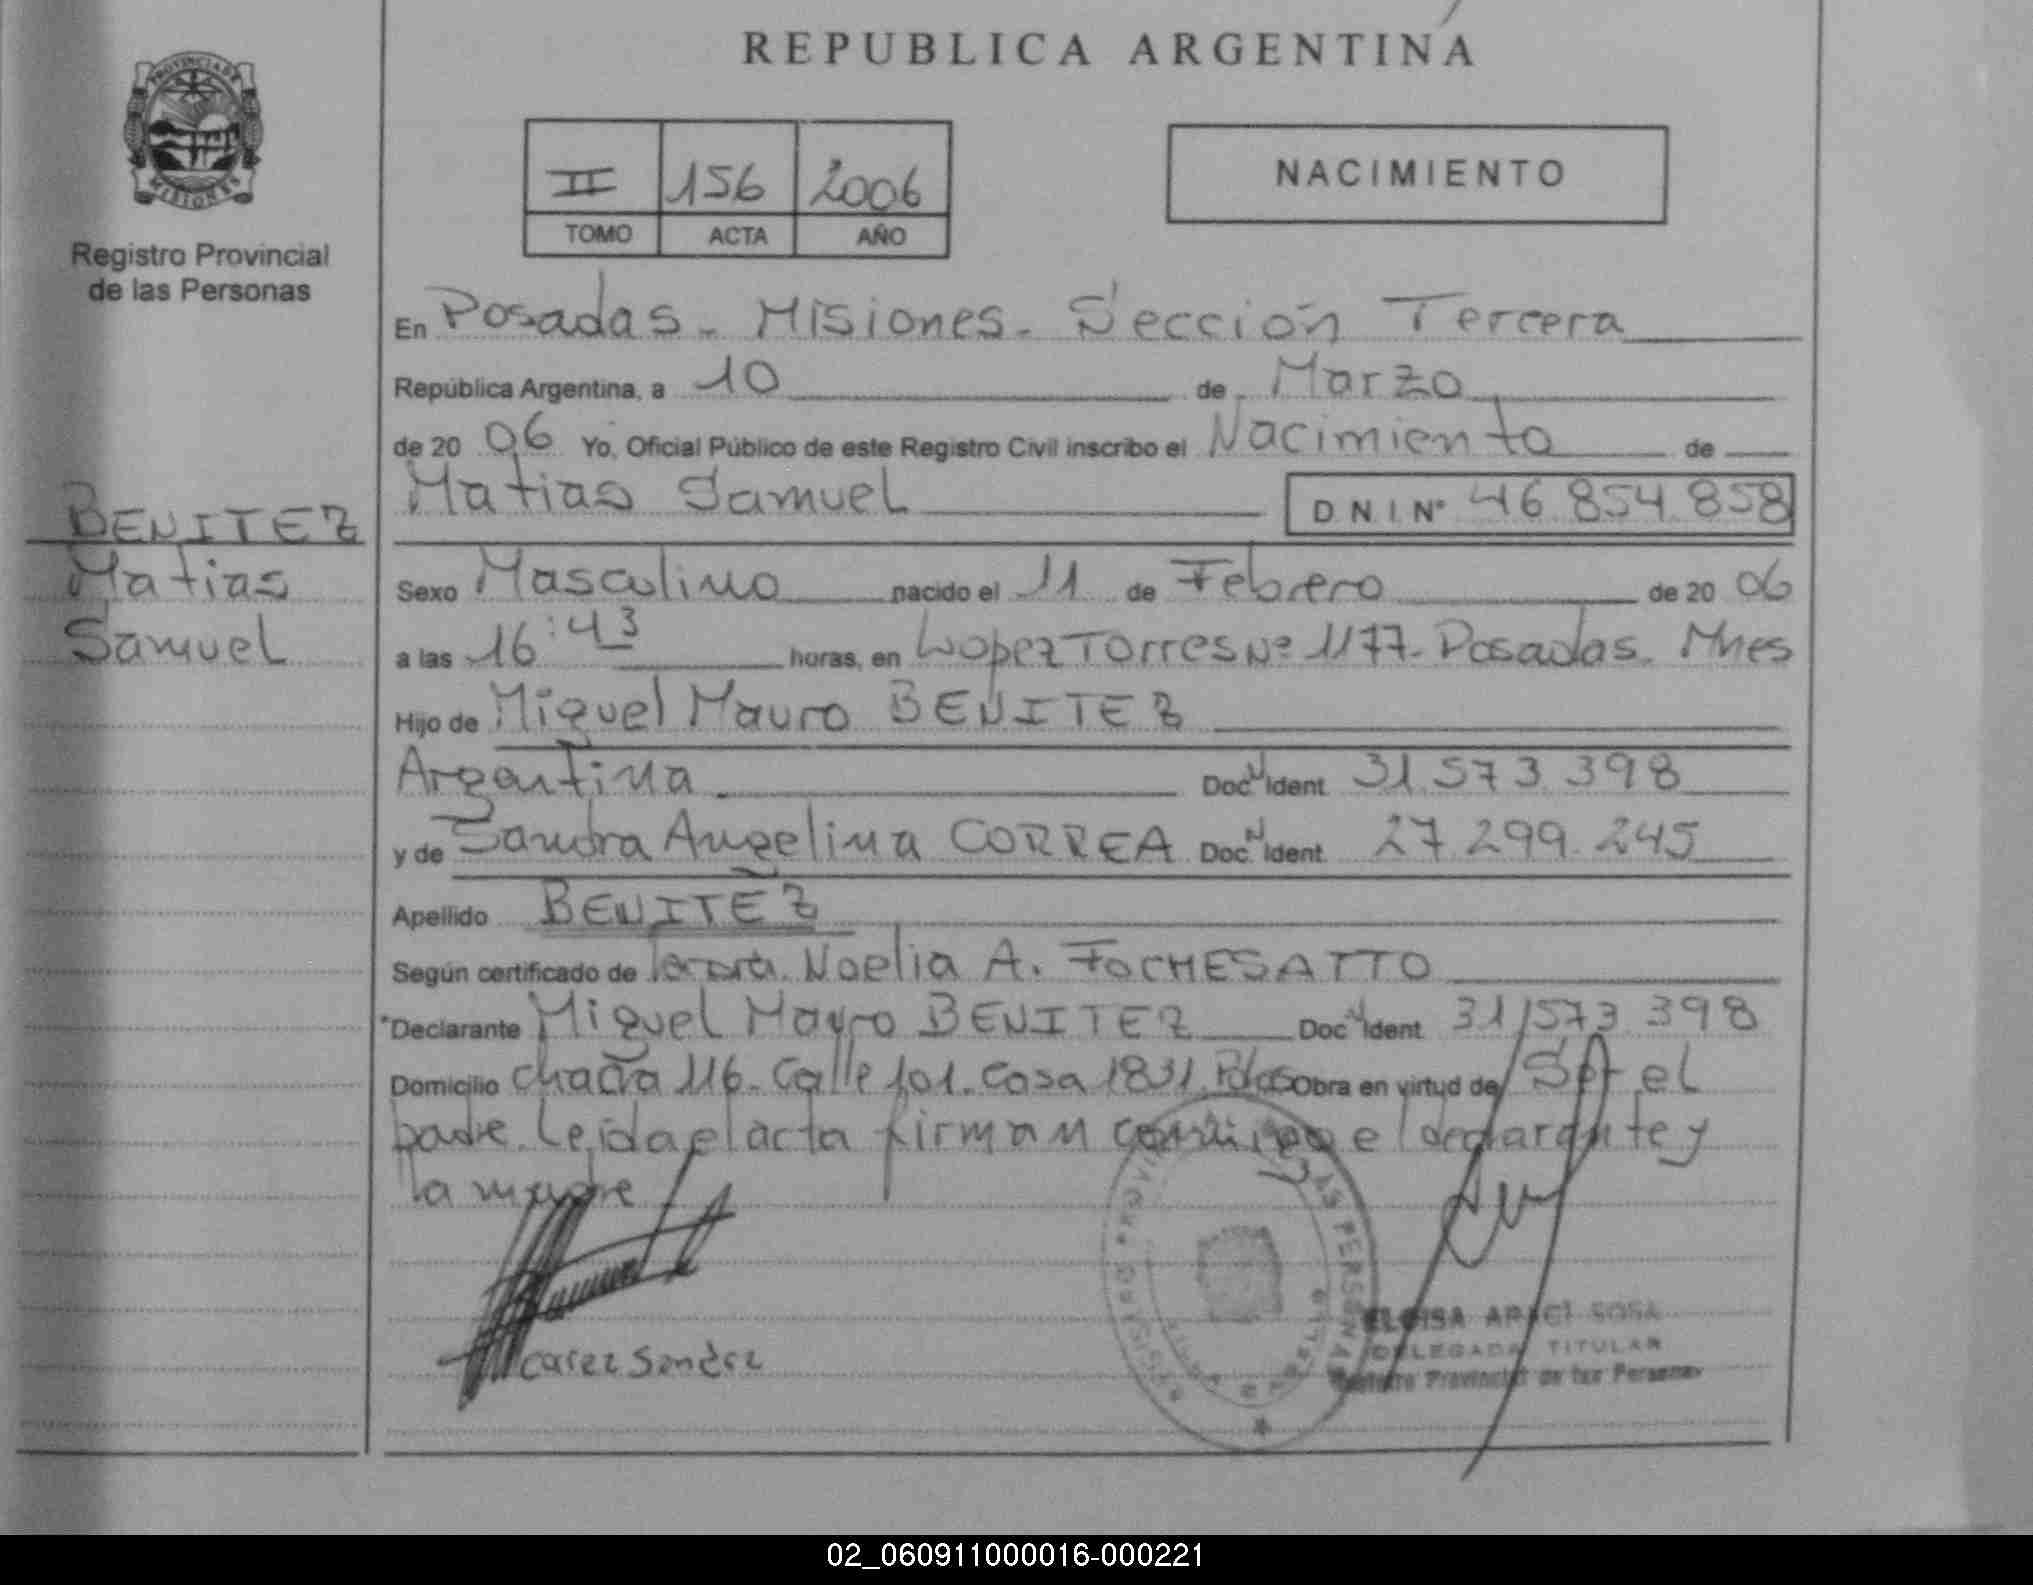 REPUBLICA ARGENTINA
PROVINCIA DE
MISIONES
Registro Provincial
de las Personas
II 156 2006
TOMO ACTA AÑO
NACIMIENTO
En Posadas - Misiones - Sección Tercera
República Argentina, a 10 de Marzo
de 20 06 Yo, Oficial Público de este Registro Civil inscribo el Nacimiento de
Matias Samuel D N I Nº 46 854 858
BENITEZ
Matias
Samuel
Sexo Masculino nacido el 11 de Febrero de 20 06
a las 16:43 horas, en Lopez Torres Nº 1177 - Posadas - Mnes
Hijo de Miguel Mauro BENITEZ
Argentina Doc N Ident 31.573.398
y de Sandra Angelina CORREA Doc N Ident 27.299.245
Apellido BENITEZ
Según certificado de Noelia A. FOCHESATTO
*Declarante Miguel Mauro BENITEZ Doc N Ident 31 573 398
Domicilio chacra 116 - Calle 101 - Casa 1831 Obra en virtud de Ser el
padre. Leída el acta firman conmigo el declarante y
la madre
ELOISA ARACI SOSA
DELEGADA TITULAR
Registro Provincial de las Personas
02_060911000016-000221